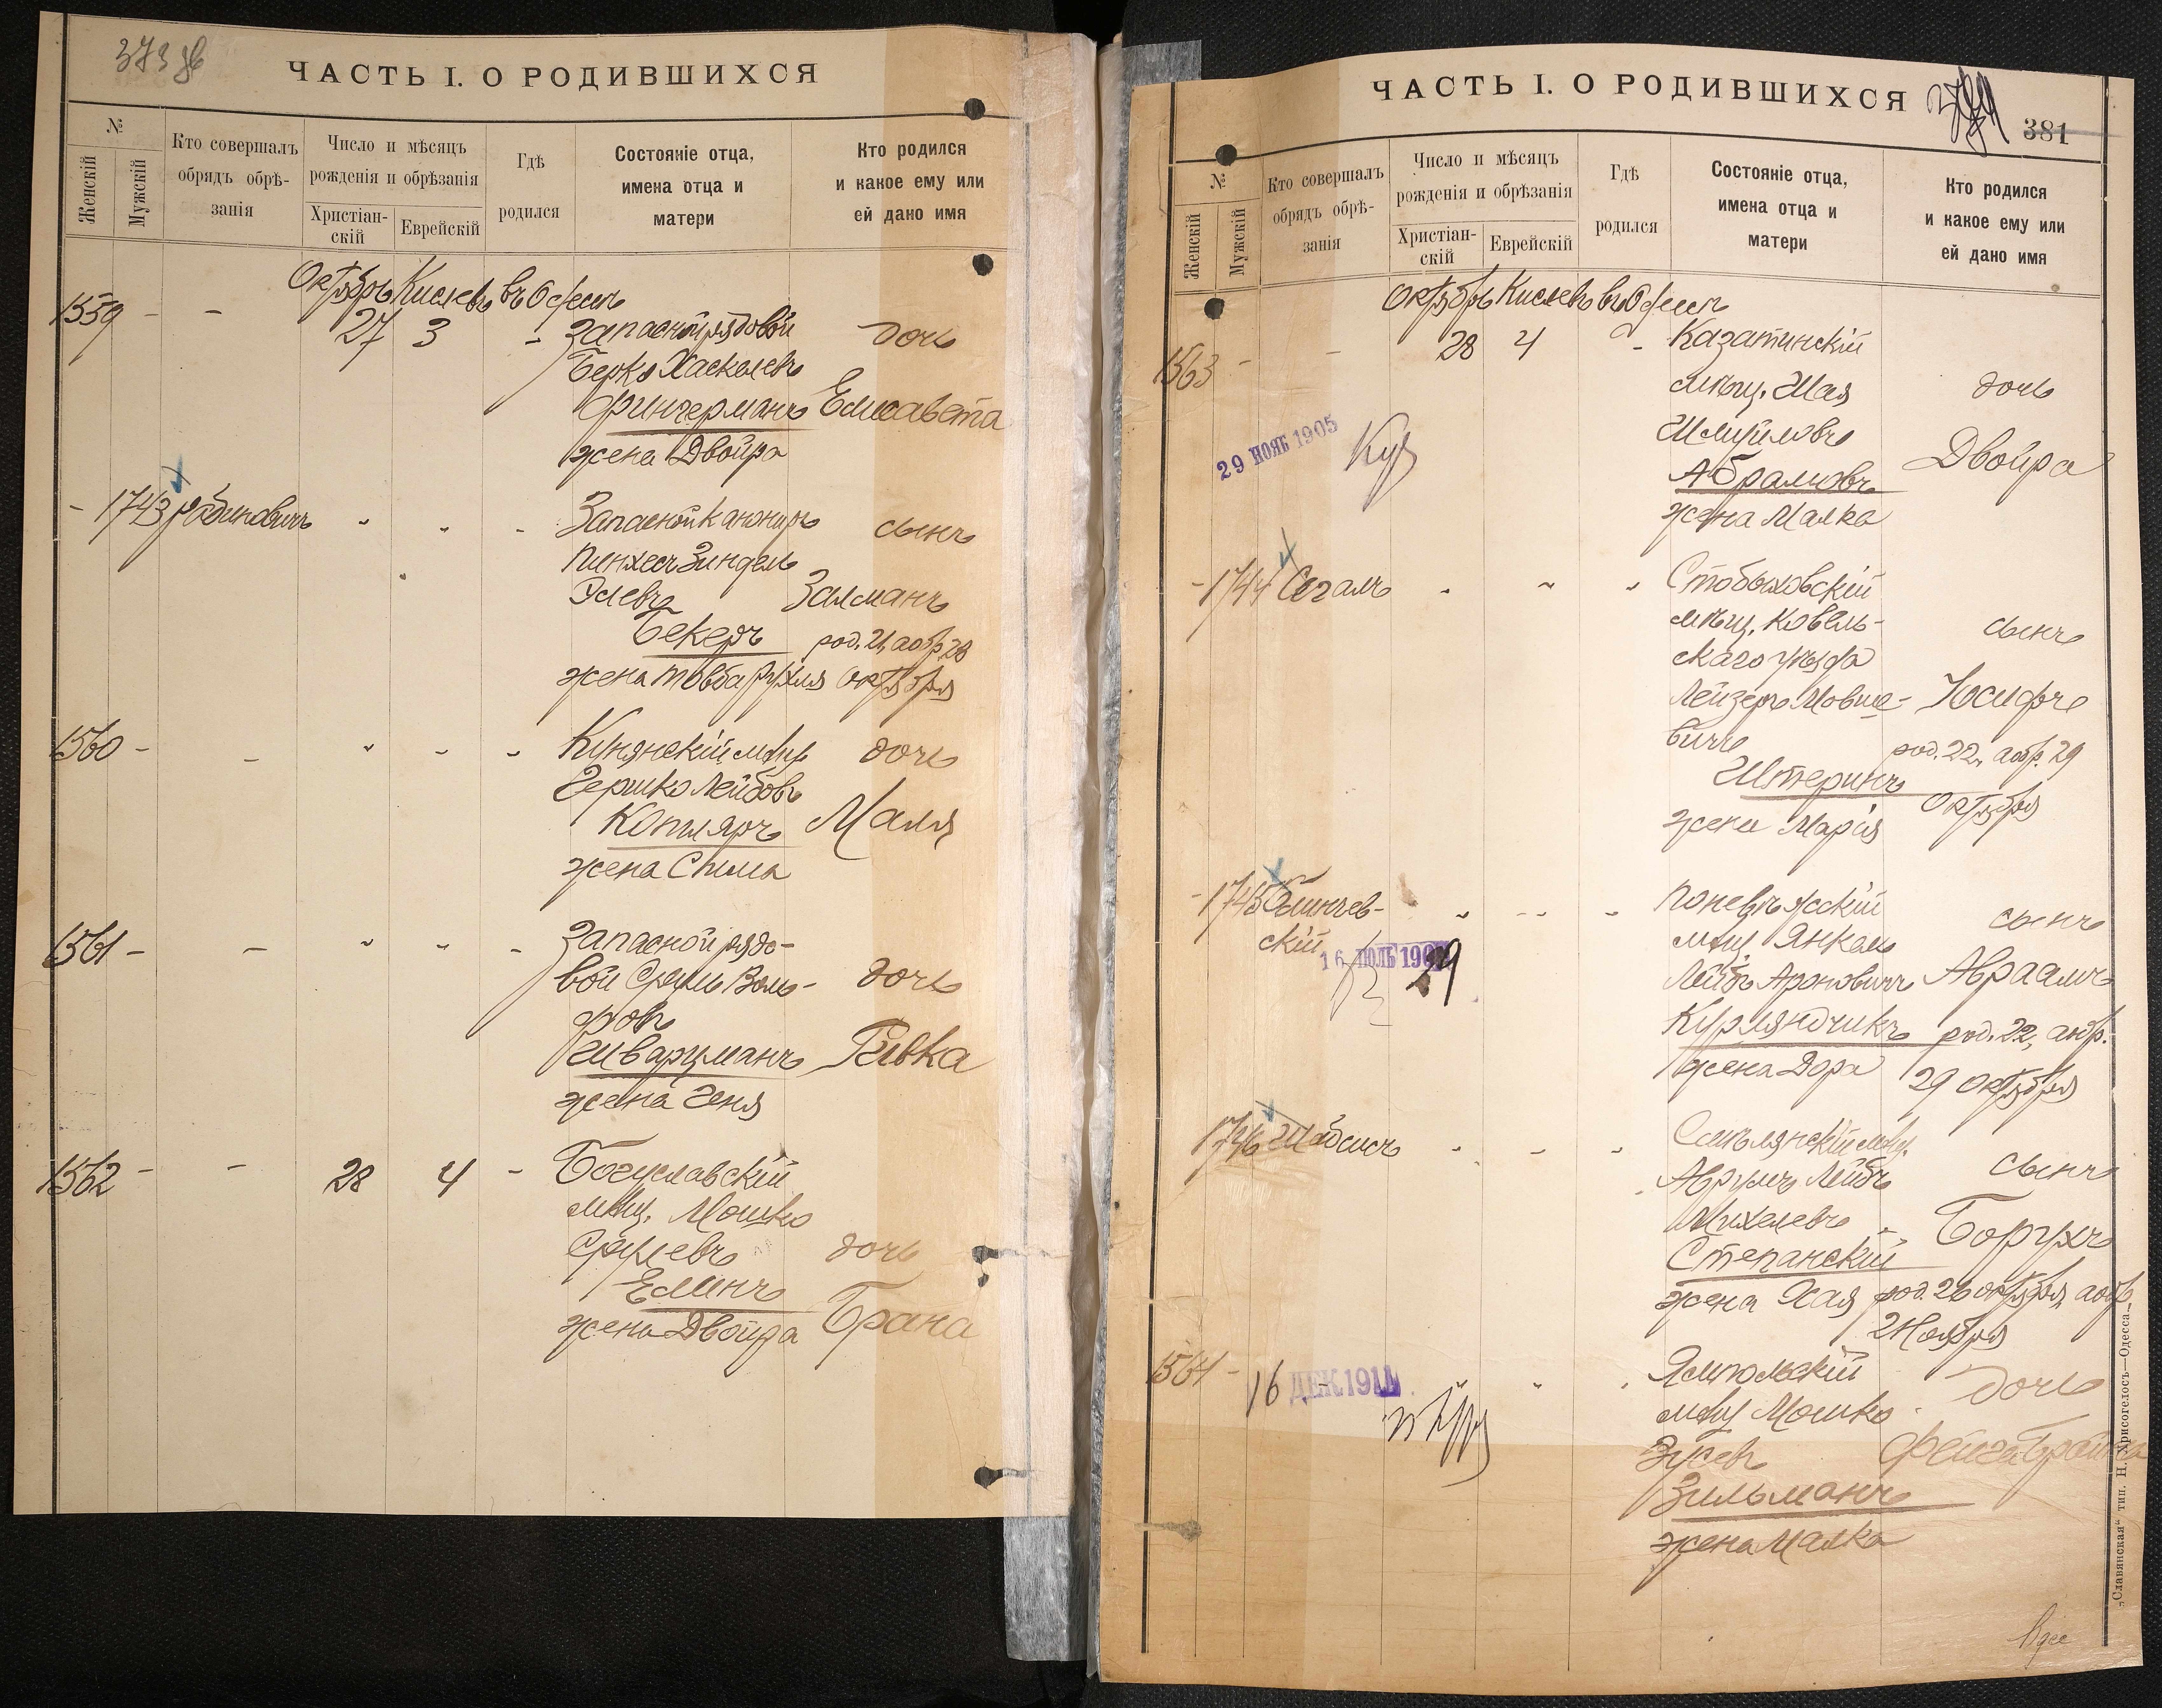 ЧАСТЬ I. О РОДИВШИХСЯ
№
Женскій
Мужскій
Кто совершалъ обрядъ обрѣ-
занія
Число и мѣсяцъ
рожденія и обрѣзанія
Христіан-
скій
Еврейскій
Гдѣ
родился
Состояніе отца,
имена отца и
матери
Кто родился
и какое ему или
ей дано имя
Октябрь Кислевъ въ Одессѣ
1559 - - 27 3 - Запасной рядовой дочь
Берко Хаскелевъ
Фингерманъ Елисавета
жена Двойра
- 1743 Рабиновичъ " " - Запасной канониръ сынъ
Пинхесъ Зиндель
Элевъ Залманъ
Бекеръ род. 21, а обр. 28
жена Товба Рухля Октября
1560 - - " - - мѣщ. дочь
Гершко Лейбовъ
Котляръ Маля
жена Сима
1561 - - " " - Запасной рядо-
вой Сруль Воль- дочь
фовъ
Шварцманъ Ривка
жена Геня
1562 - - 28 4 - Богуславскій
мѣщ. Мошко
Срулевъ дочь
Елинъ
жена Двойра Брана
ЧАСТЬ I. О РОДИВШИХСЯ
381
№
Женскій
Мужскій
Кто совершалъ
обрядъ обрѣ-
занія
Число и мѣсяцъ
рожденія и обрѣзанія
Христіан-
скій
Еврейскій
Гдѣ
родился
Состояніе отца,
имена отца и
матери
Кто родился
и какое ему или
ей дано имя
Октябрь Кислевъ въ Одессѣ
1563 - - 28 4 - Казатинскій
мѣщ. Шая дочь
29 НОЯБ 1905
Шмуйловъ
Абрамовъ Двойра
жена Малка
- 1744 Сегалъ " " " Стобыховскій
мѣщ. Ковель- сынъ
скаго уѣзда
Лейзеръ Мовше- Іосифъ
вичъ род. 22, а обр. 29
Штеринъ Октября
жена Марія
- 1745 " - - - Поневѣжскій сынъ
скій мѣщ. Янкель
16 ІЮЛЬ
Лейбъ Ароновичъ Авраамъ
Курляндчикъ род. 22, а обр.
жена Дора 29 Октября
1746 Шабсисъ " - - Смѣлянскій мѣщ.
Аврумъ Лейбъ сынъ
Михелевъ Борухъ
Степанскій
жена Хая род. 26 октября, а обр.
2 Ноября
1564 - - " " " Ямпольскій дочь
16 ДЕК 1911
мѣщ Мошко
Зусевъ Фейга Брайна
Зильманъ
жена Малка
„Славянская“ тип. Н. Хрисогелосъ—Одесса.